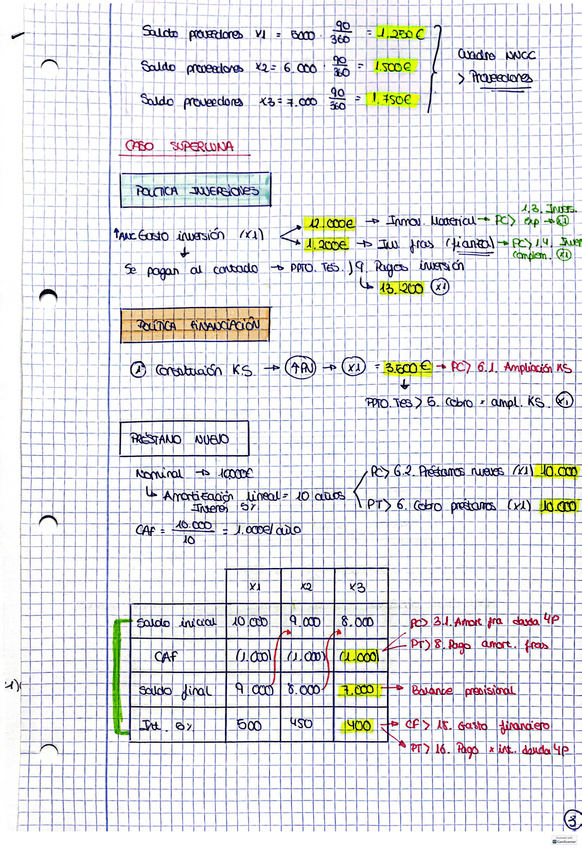 Saldo proveedores X1 = 5000 · 90/360 = 1.250€
Saldo proveedores X2 = 6.000 · 90/360 = 1.500€
Saldo proveedores X3 = 7.000 · 90/360 = 1.750€
Cuadro NNCC
> Proveedores
CASO SUPERLUNA
POLITICA INVERSIONES
12.000€ → Inmov. Material → PC> 1.3. Invers.
exp → X1
↑ANC Gasto inversión (X1)
1.200€ → Inv fras (fianza) → PC> 1.4. Inver
complem. X1
Se pagan al contado → PPTO. TES. > 9. Pagos inversión
13.200 X1
POLÍTICA FINANCIACIÓN
① Constitución KS → ↑PN → X1 = 3.500€ → PC> 6.1. Ampliación KS
PPTO. TES > 5. Cobro x ampl. KS. X1
PRÉSTAMO NUEVO
Nominal → 10000€
↳ Amortización lineal = 10 años
Interés 5%
PC> 6.2. Préstamos nuevos (X1) 10.000
PT> 6. Cobro préstamos (X1) 10.000
CAf = 10.000/10 = 1.000€/año
X1 X2 X3
Saldo inicial 10.000 9.000 8.000
CAf (1.000) (1.000) (1.000)
Saldo final 9.000 8.000 7.000
Int. 5% 500 450 400
PC> 3.1. Amort. fra deuda LP
PT> 8. Pago amort. fras
→ Balance previsional
CF> 15. Gasto financiero
PT> 16. Pago x int. deuda LP
3
CamScanner